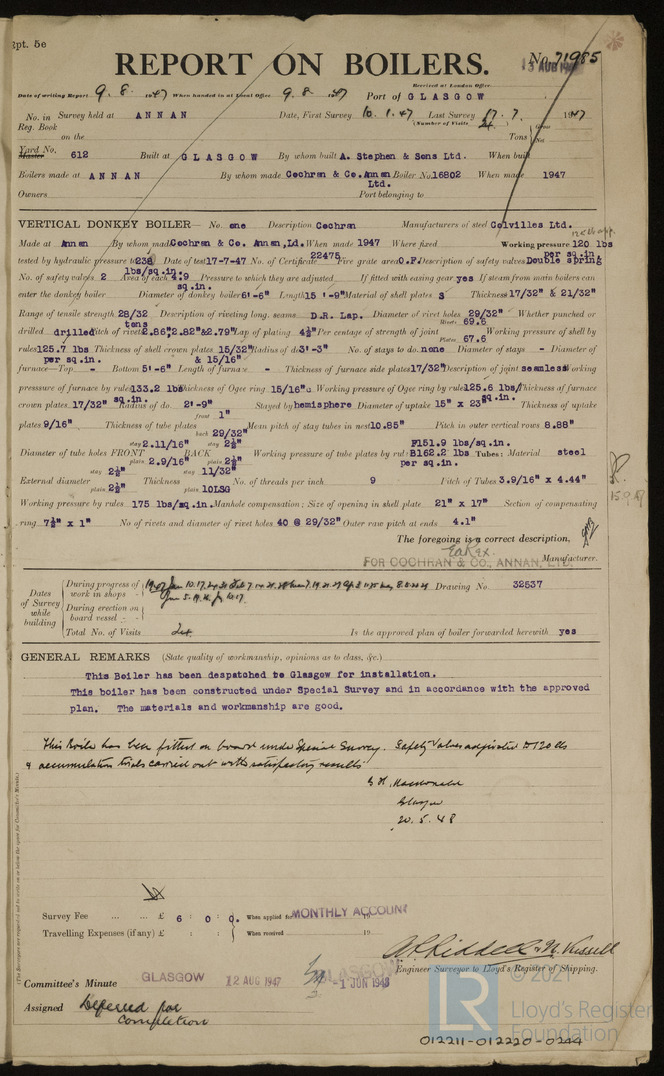 Rpt. 5e
REPORT ON BOILERS.
No. 71985
13 AUG 1947
Received at London Office
Date of writing Report 9. 8. 1947 When handed in at Local Office 9. 8. 1947 Port of GLASGOW
No. in Survey held at ANNAN Date, First Survey 10. 1. 47 Last Survey 17. 7. 1947
Reg. Book (Number of Visits 24)
on the Tons { Gross Net
Yard No. Master 612 Built at GLASGOW By whom built A. Stephen & Sons Ltd. When built
Boilers made at ANNAN By whom made Cochran & Co. Annan Ltd. Boiler No. 16802 When made 1947
Owners Port belonging to
VERTICAL DONKEY BOILER— No. one Description Cochran Manufacturers of steel Colvilles Ltd.
Made at Annan By whom made Cochran & Co. Annan, Ld. When made 1947 Where fixed Working pressure 120 lbs per sq.in.
tested by hydraulic pressure to 230 lbs/sq.in. Date of test 17-7-47 No. of Certificate 22475 Fire grate area O.F. Description of safety valves Double spring
No. of safety valves 2 Area of each 4.9 sq.in. Pressure to which they are adjusted If fitted with easing gear yes If steam from main boilers can
enter the donkey boiler Diameter of donkey boiler 6'-6" Length 15'-9" Material of shell plates S Thickness 17/32" & 21/32"
Range of tensile strength 28/32 tons Description of riveting long. seams D.R. Lap. Diameter of rivet holes 29/32" Whether punched or
drilled drilled Pitch of rivets 2.86" 2.82" & 2.79" Lap of plating 4½" Per centage of strength of joint Rivets 69.6 Plates 67.6 Working pressure of shell by
rules 125.7 lbs per sq.in. Thickness of shell crown plates 15/32" & 15/16" Radius of do. 3'-3" No. of stays to do. none Diameter of stays - Diameter of
furnace—Top - Bottom 5'-6" Length of furnace - Thickness of furnace side plates 17/32" Description of joint seamless Working
pressure of furnace by rules 133.2 lbs sq.in. Thickness of Ogee ring 15/16" Working pressure of Ogee ring by rules 125.6 lbs/sq.in. Thickness of furnace
crown plates 17/32" Radius of do. 2'-9" Stayed by hemisphere Diameter of uptake 15" x 23" Thickness of uptake
plates 9/16" Thickness of tube plates front 1" back 29/32" Mean pitch of stay tubes in nest 10.85" Pitch in outer vertical rows 8.88"
Diameter of tube holes FRONT stay 2.11/16" plain 2.9/16" BACK stay 2½" plain 2½" Working pressure of tube plates by rules F151.9 lbs/sq.in. B162.2 lbs per sq.in. Tubes: Material steel
External diameter stay 2½" plain 2½" Thickness stay 11/32" plain 10LSG No. of threads per inch 9 Pitch of Tubes 3.9/16" x 4.44"
Working pressure by rules 175 lbs/sq.in. Manhole compensation: Size of opening in shell plate 21" x 17" Section of compensating
ring 7½" x 1" No of rivets and diameter of rivet holes 40 @ 29/32" Outer row pitch at ends 4.1"
The foregoing is a correct description,
FOR COCHRAN & CO., ANNAN, LTD. Manufacturer.
Dates of Survey while building
During progress of work in shops - -
During erection on board vessel - -
Total No. of Visits
Drawing No. 32537
Is the approved plan of boiler forwarded herewith yes
GENERAL REMARKS (State quality of workmanship, opinions as to class, &c.)
This Boiler has been despatched to Glasgow for installation.
This boiler has been constructed under Special Survey and in accordance with the approved
plan. The materials and workmanship are good.
This Boiler has been fitted on board under Special Survey. Safety Valves adjusted to 120 lbs
& accumulation trials carried out with satisfactory results
G. H. Macdonald
Glasgow
20. 5. 48
Survey Fee ... ... £ 6 : 0 : 0. When applied for MONTHLY ACCOUNT 19
Travelling Expenses (if any) £ : : When received 19
A. Riddell & N. Russell
Engineer Surveyor to Lloyd's Register of Shipping.
Committee's Minute GLASGOW 12 AUG 1947 GLASGOW -1 JUN 1948
Assigned Deferred for
completion
© 2021
LR
Lloyd's Register
Foundation
012211-012220-0244